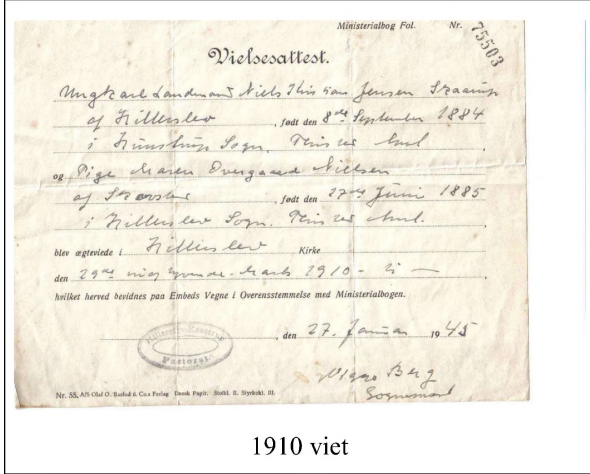 Ministerialbog Fol. Nr. 75503
Vielsesattest.
Ungkarl Landmand Niels Kristian Jensen Skaarup
af Hillerslev, født den 8de September 1884
i Kaastrup Sogn, Thisted Amt
og Pige Maren Overgaard Nielsen
af Skovsted, født den 27de Juni 1885
i Hillerslev Sogn, Thisted Amt.
blev ægteviede i Hillerslev Kirke
den 29de Marts 1910 -
hvilket herved bevidnes paa Embeds Vegne i Overensstemmelse med Ministerialbogen.
Pastorat
, den 27. Januar 1945
Viggo Berg
Sognepræst
Nr. 55. A/S Olaf O. Barfod & Co.s Forlag Dansk Papir. Stofkl. II. Styrkekl. III.
1910 viet